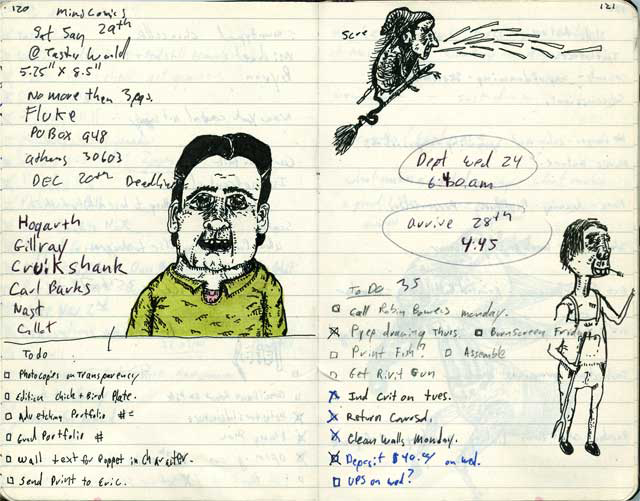 120
Mind Comics
Sat Jan 29th
@ Tasty World
5.25" x 8.5"
No more then 3 pgs.
Fluke
PO Box 948
Athens 30603
DEC 20th Deadline
Hogarth
Gillray
Cruikshank
Carl Barks
Nast
Callot
To do
Photocopies on Transparency
Edition Chick + Bird Plate.
Adv etching Portfolio #=
Grad Portfolio #
Wall text for Puppet in Character.
Send Print to Eric.
121
Scree
Dept wed 24
6:40 am
Arrive 28th
4:45
To Do 35
Call Robin Bowers monday.
Prep drawing Thurs. Burn screen Friday
Print Fish? Assemble
Get Rivit Gun
Ind Crit on tues.
Return
Clean walls Monday.
Deposit $40.00 on wed.
UPS on wed?